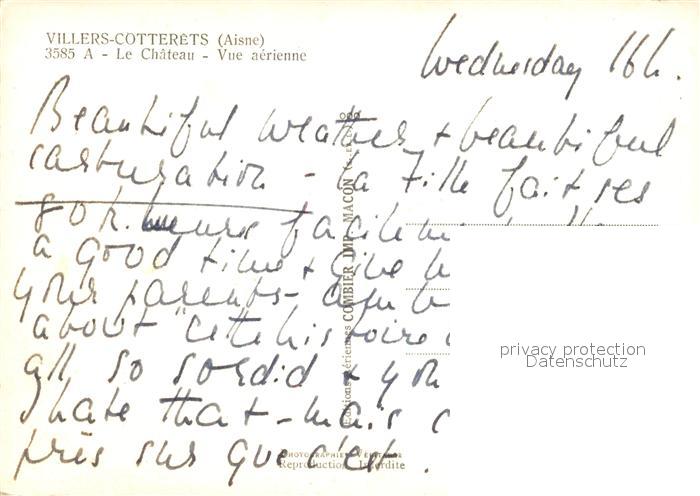 VILLERS-COTTERÊTS (Aisne)
3585 A - Le Château - Vue aérienne
Wednesday 16h.
Beautiful weather + beautiful
- la fille fait ses
heures facile
a good time + give
your parents -
about "cette histoire
all so sordid + you
hate that - mais
près sur que c'est.
Editions aériennes COMBIER IMP. MACON
PHOTOGRAPHIE VÉRITABLE
Reproduction Interdite
privacy protection
Datenschutz